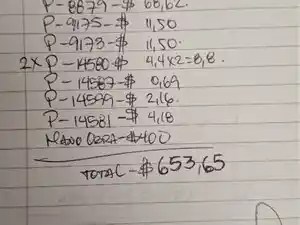 P-8879-$ 68,62.
P-9175-$ 11,50
P-9173-$ 11,50.
2x P-14580-$ 4,4x2=8,8.
P-14587-$ 0,69
P-14599-$ 2,16.
P-14581-$ 4,18
MANO OBRA-$400
TOTAL-$653,65